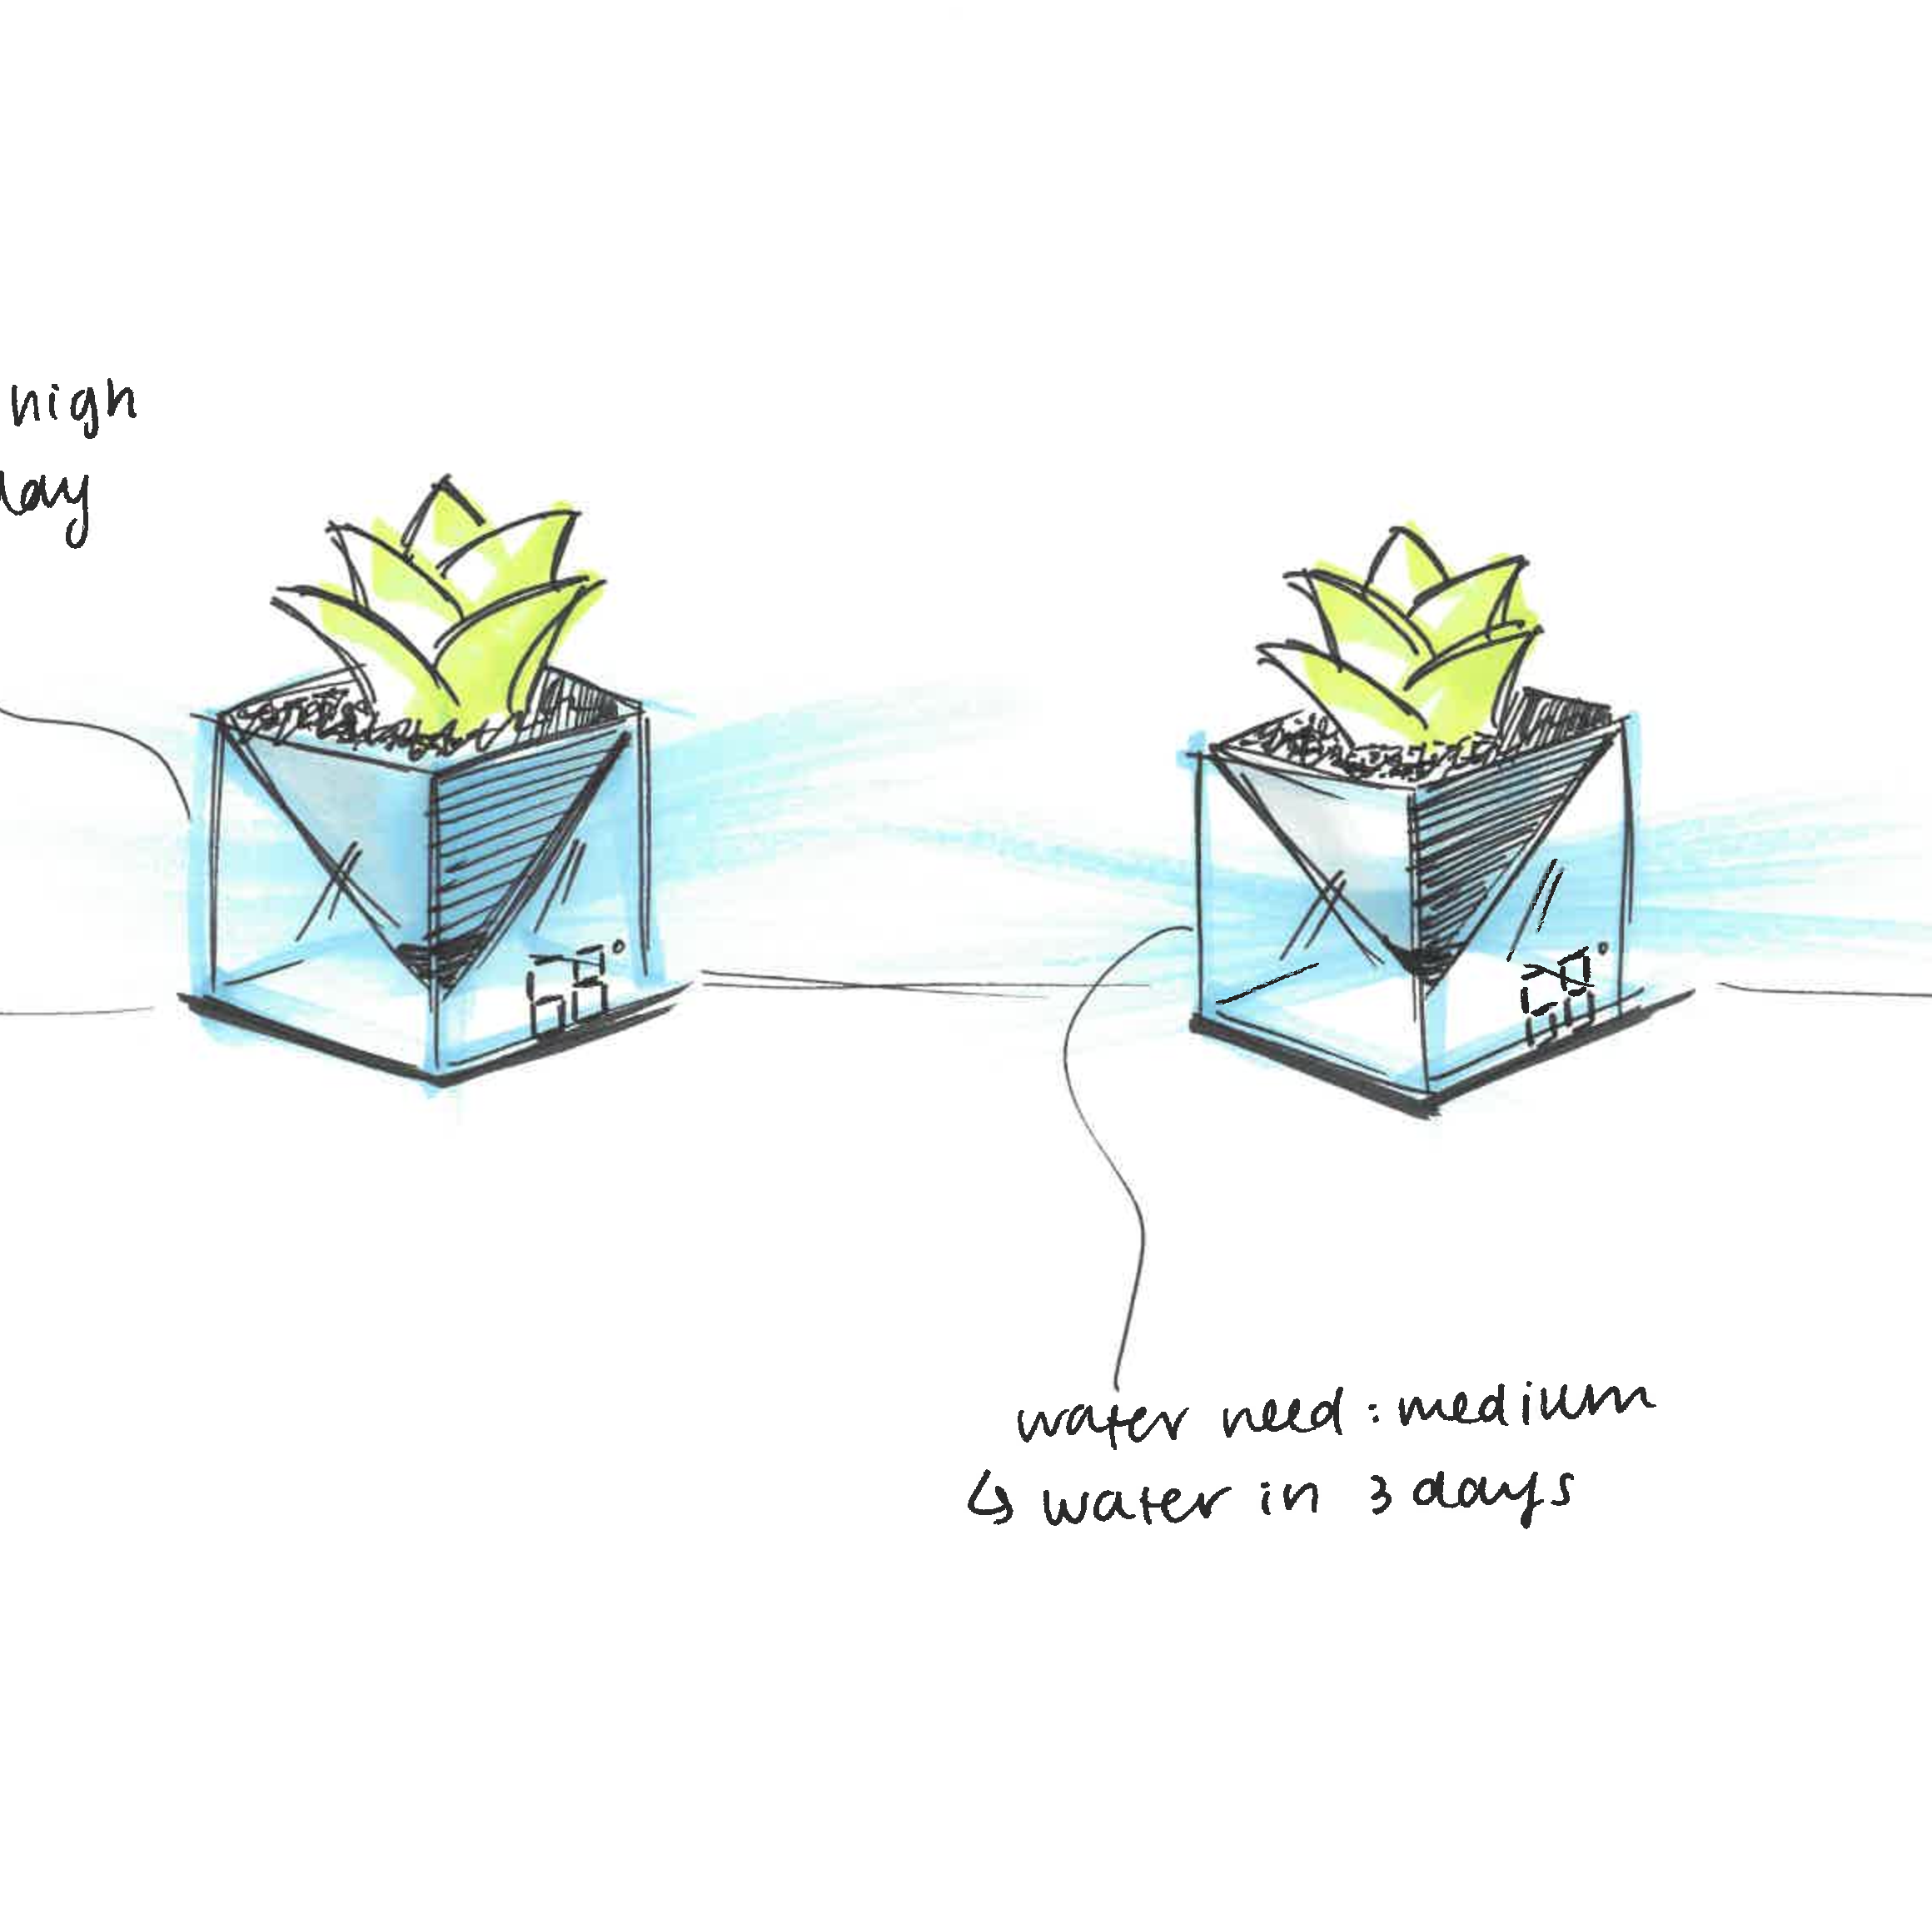 high
day
68°
water need: medium
↳ water in 3 days